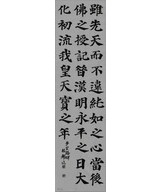 雖先天而不違純如之心當後
佛之授記昔漢明永平之日大
化初流我皇天寶之年